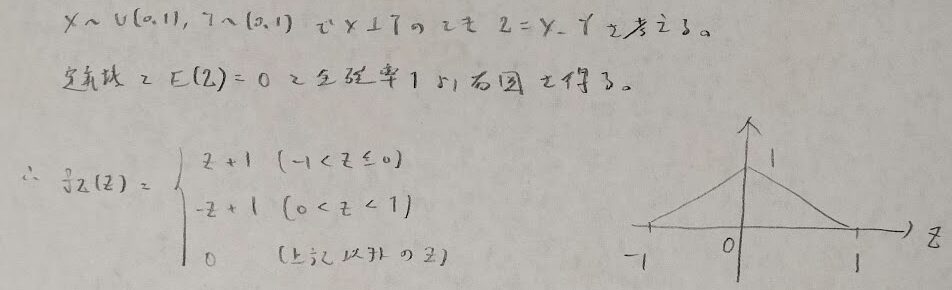 X ~ U(0,1), Y ~ (0,1) で X⊥Y のとき Z = X - Y を考える。
定義域と E(Z) = 0 と全確率 1 より右図を得る。
∴ fz(z) = { z + 1 (-1 < z ≤ 0)
-z + 1 (0 < z < 1)
0 (上記以外の z)
1
-1 0 1 z